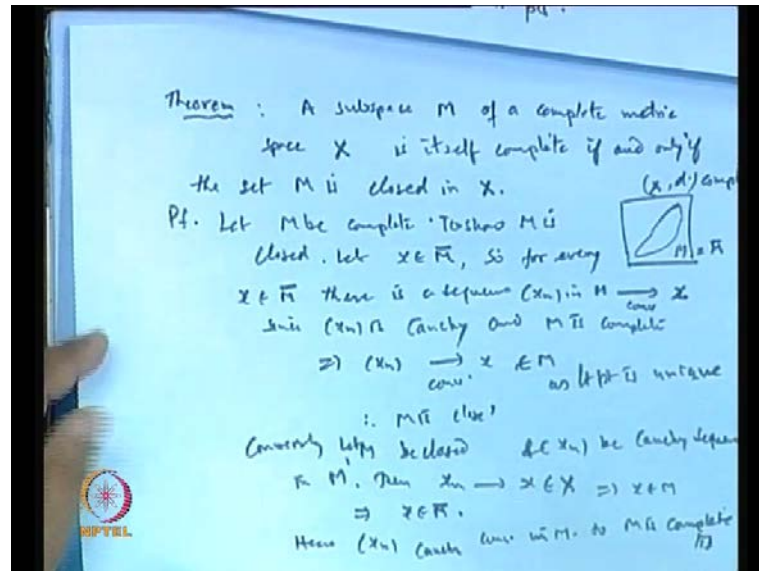 pt.
Theorem : A subspace M of a complete metric
space X is itself complete if and only if
the set M is closed in X.
(X, d) comp
Pf. Let M be complete . To show M is
closed. Let x ∈ M̄, So for every
M = M̄
x ∈ M̄ there is a sequence (xn) in M → x
conv
Since (xn) is Cauchy and M is complete
⇒ (xn) → x ∈ M
conv. as lt pt is unique
∴ M is close
Conversely let M be closed & (xn) be Cauchy sequen
in M. Then xn → x ∈ X ⇒ x ∈ M
⇒ x ∈ M̄.
Hence (xn) Cauchy conv. in M. so M is complete
NPTEL